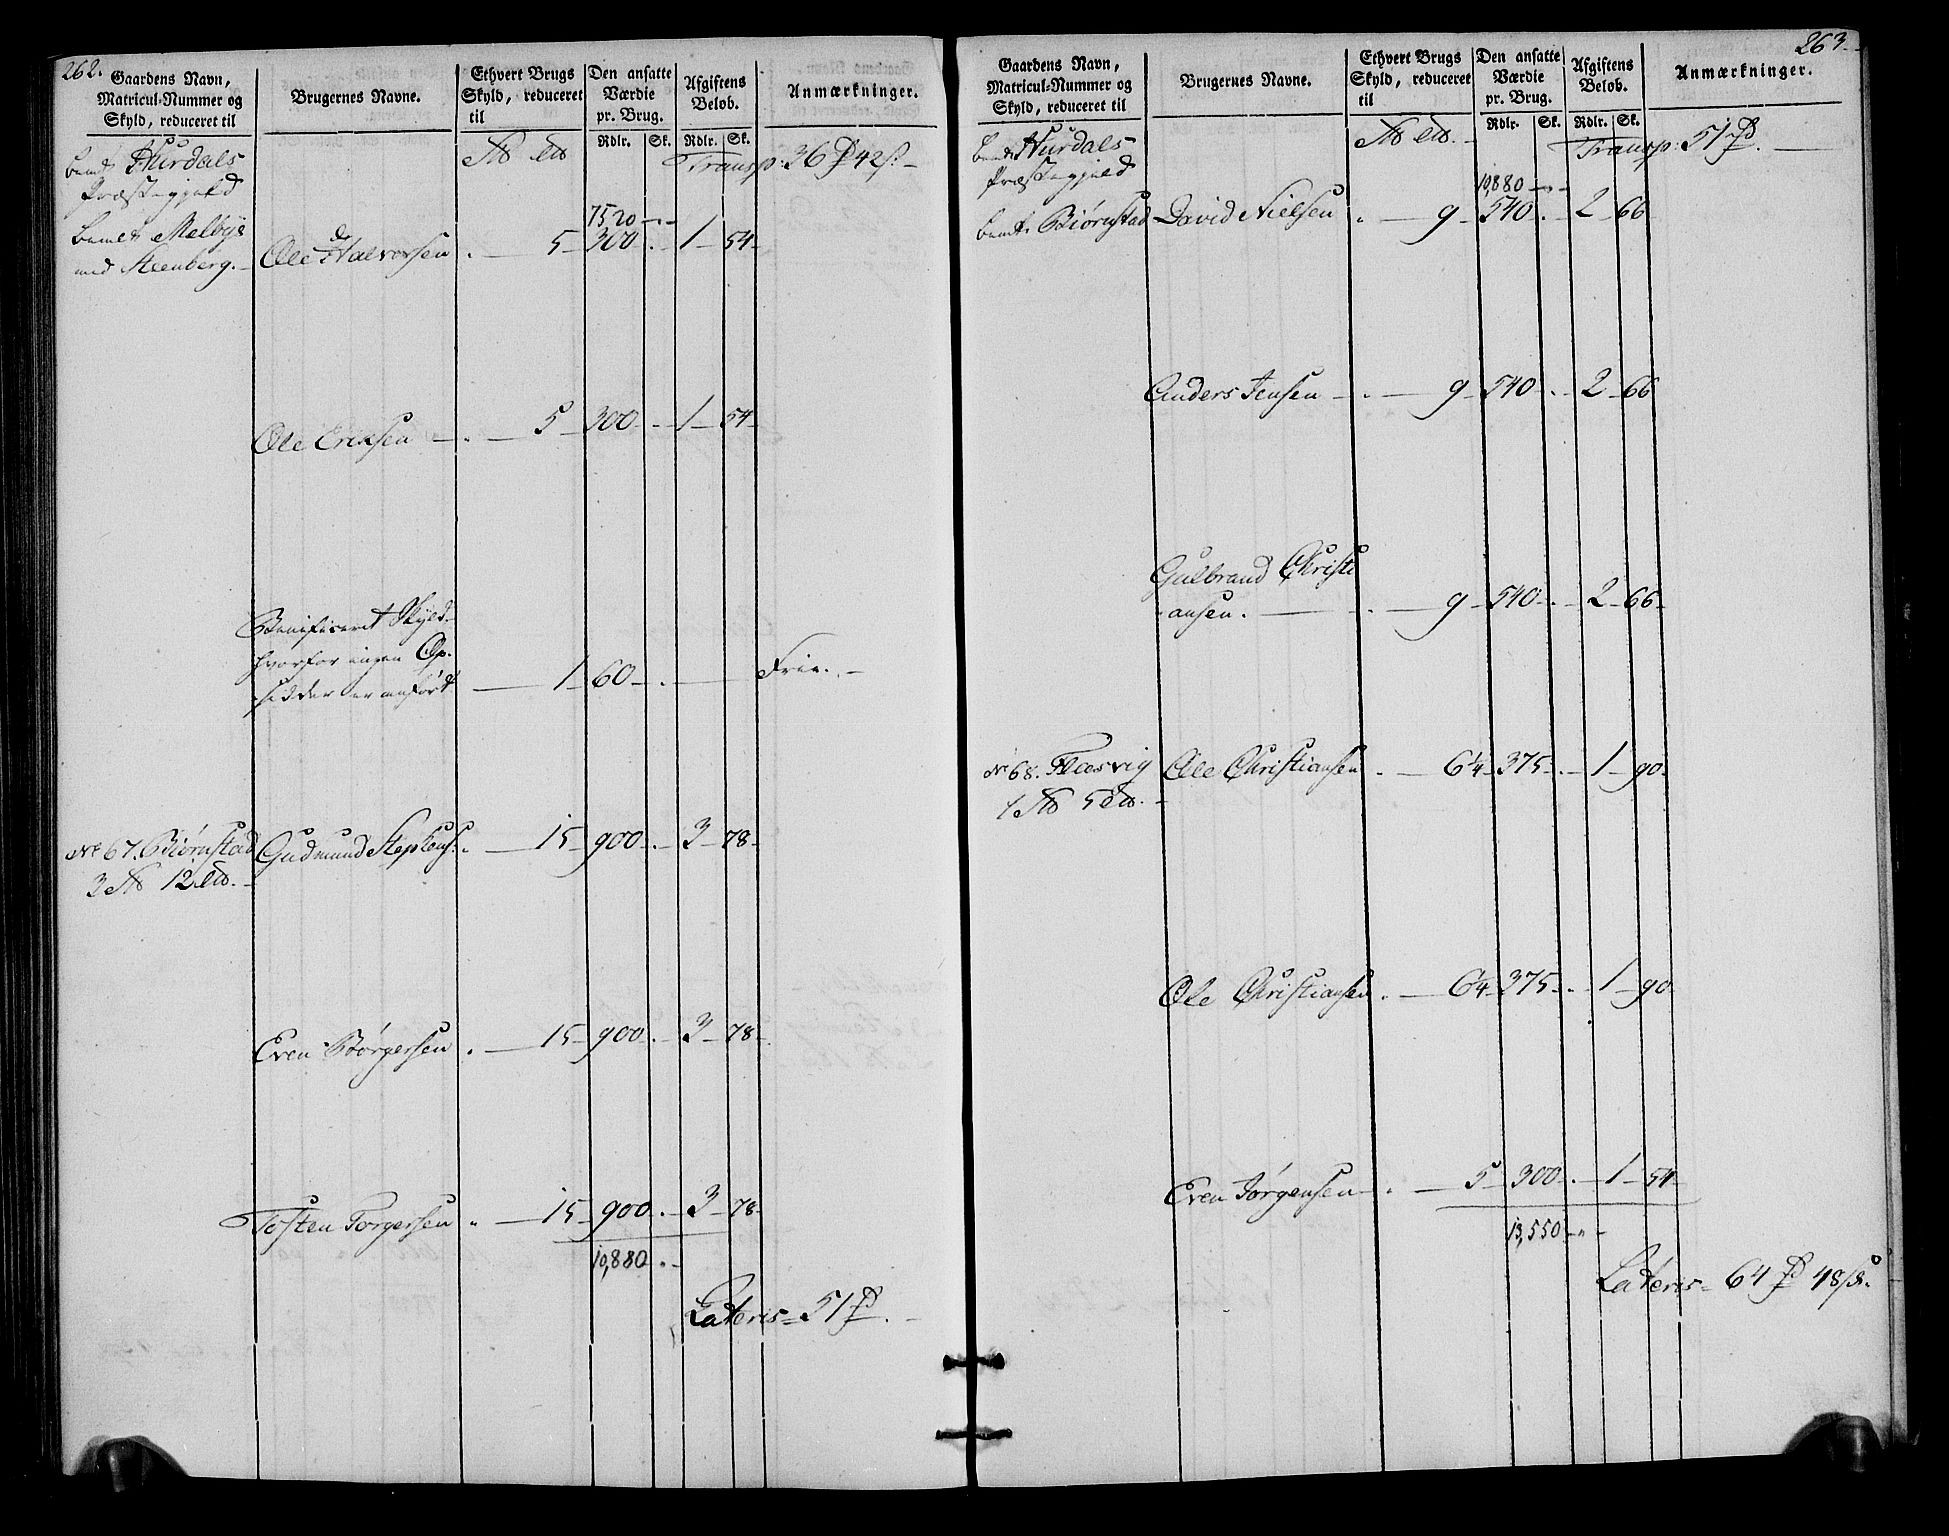 262.
Gaardens Navn,
Matricul-Nummer og
Skyld, reduceret til
Brugernes Navne.
Ethvert Brugs
Skyld, reduceret
til
Den ansatte
Værdie
pr. Brug.
Rdlr. Sk.
Afgiftens
Beløb.
Rdlr. Sk.
Anmærkninger.
Hurdals
Præstegjeld
Transp: 36 42
7520
Melbye
med Steenberg.
Ole Halvorsen 5 300 1 54
Ole Eriksen 5 300 1 54
Benificeret Skyld
hvorfor ingen Op-
sidder er anført 1 60 Frie.
No 67. Biørnstad Gudmund Stephens: 15 900 3 78
3 12
Even Børgersen 15 900 3 78
Tosten Torgersen 15 900 3 78
10,880
Lateris 51
263.
Gaardens Navn,
Matricul-Nummer og
Skyld, reduceret til
Brugernes Navne.
Ethvert Brugs
Skyld, reduceret
til
Den ansatte
Værdie
pr. Brug.
Rdlr. Sk.
Afgiftens
Beløb.
Rdlr. Sk.
Anmærkninger.
Hurdals
Præstegjeld
Transp: 51
10,880
Biørnstad David Nielsen 9 540 2 66
Anders Jensen 9 540 2 66
Gulbrand Christi
ansen. 9 540 2 66
No 68. Flæsvig Ole Christiansen 6¼ 375 1 90
1 5
Ole Christiansen 6¼ 375 1 90
Even Jørgensen 5 300 1 54
13,550
Lateris 64 48